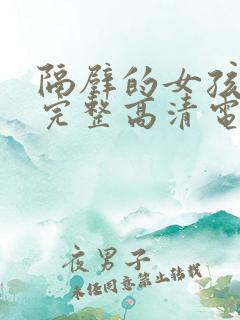 隔壁的女孩
完整高清电
夜男子
未经同意禁止转载